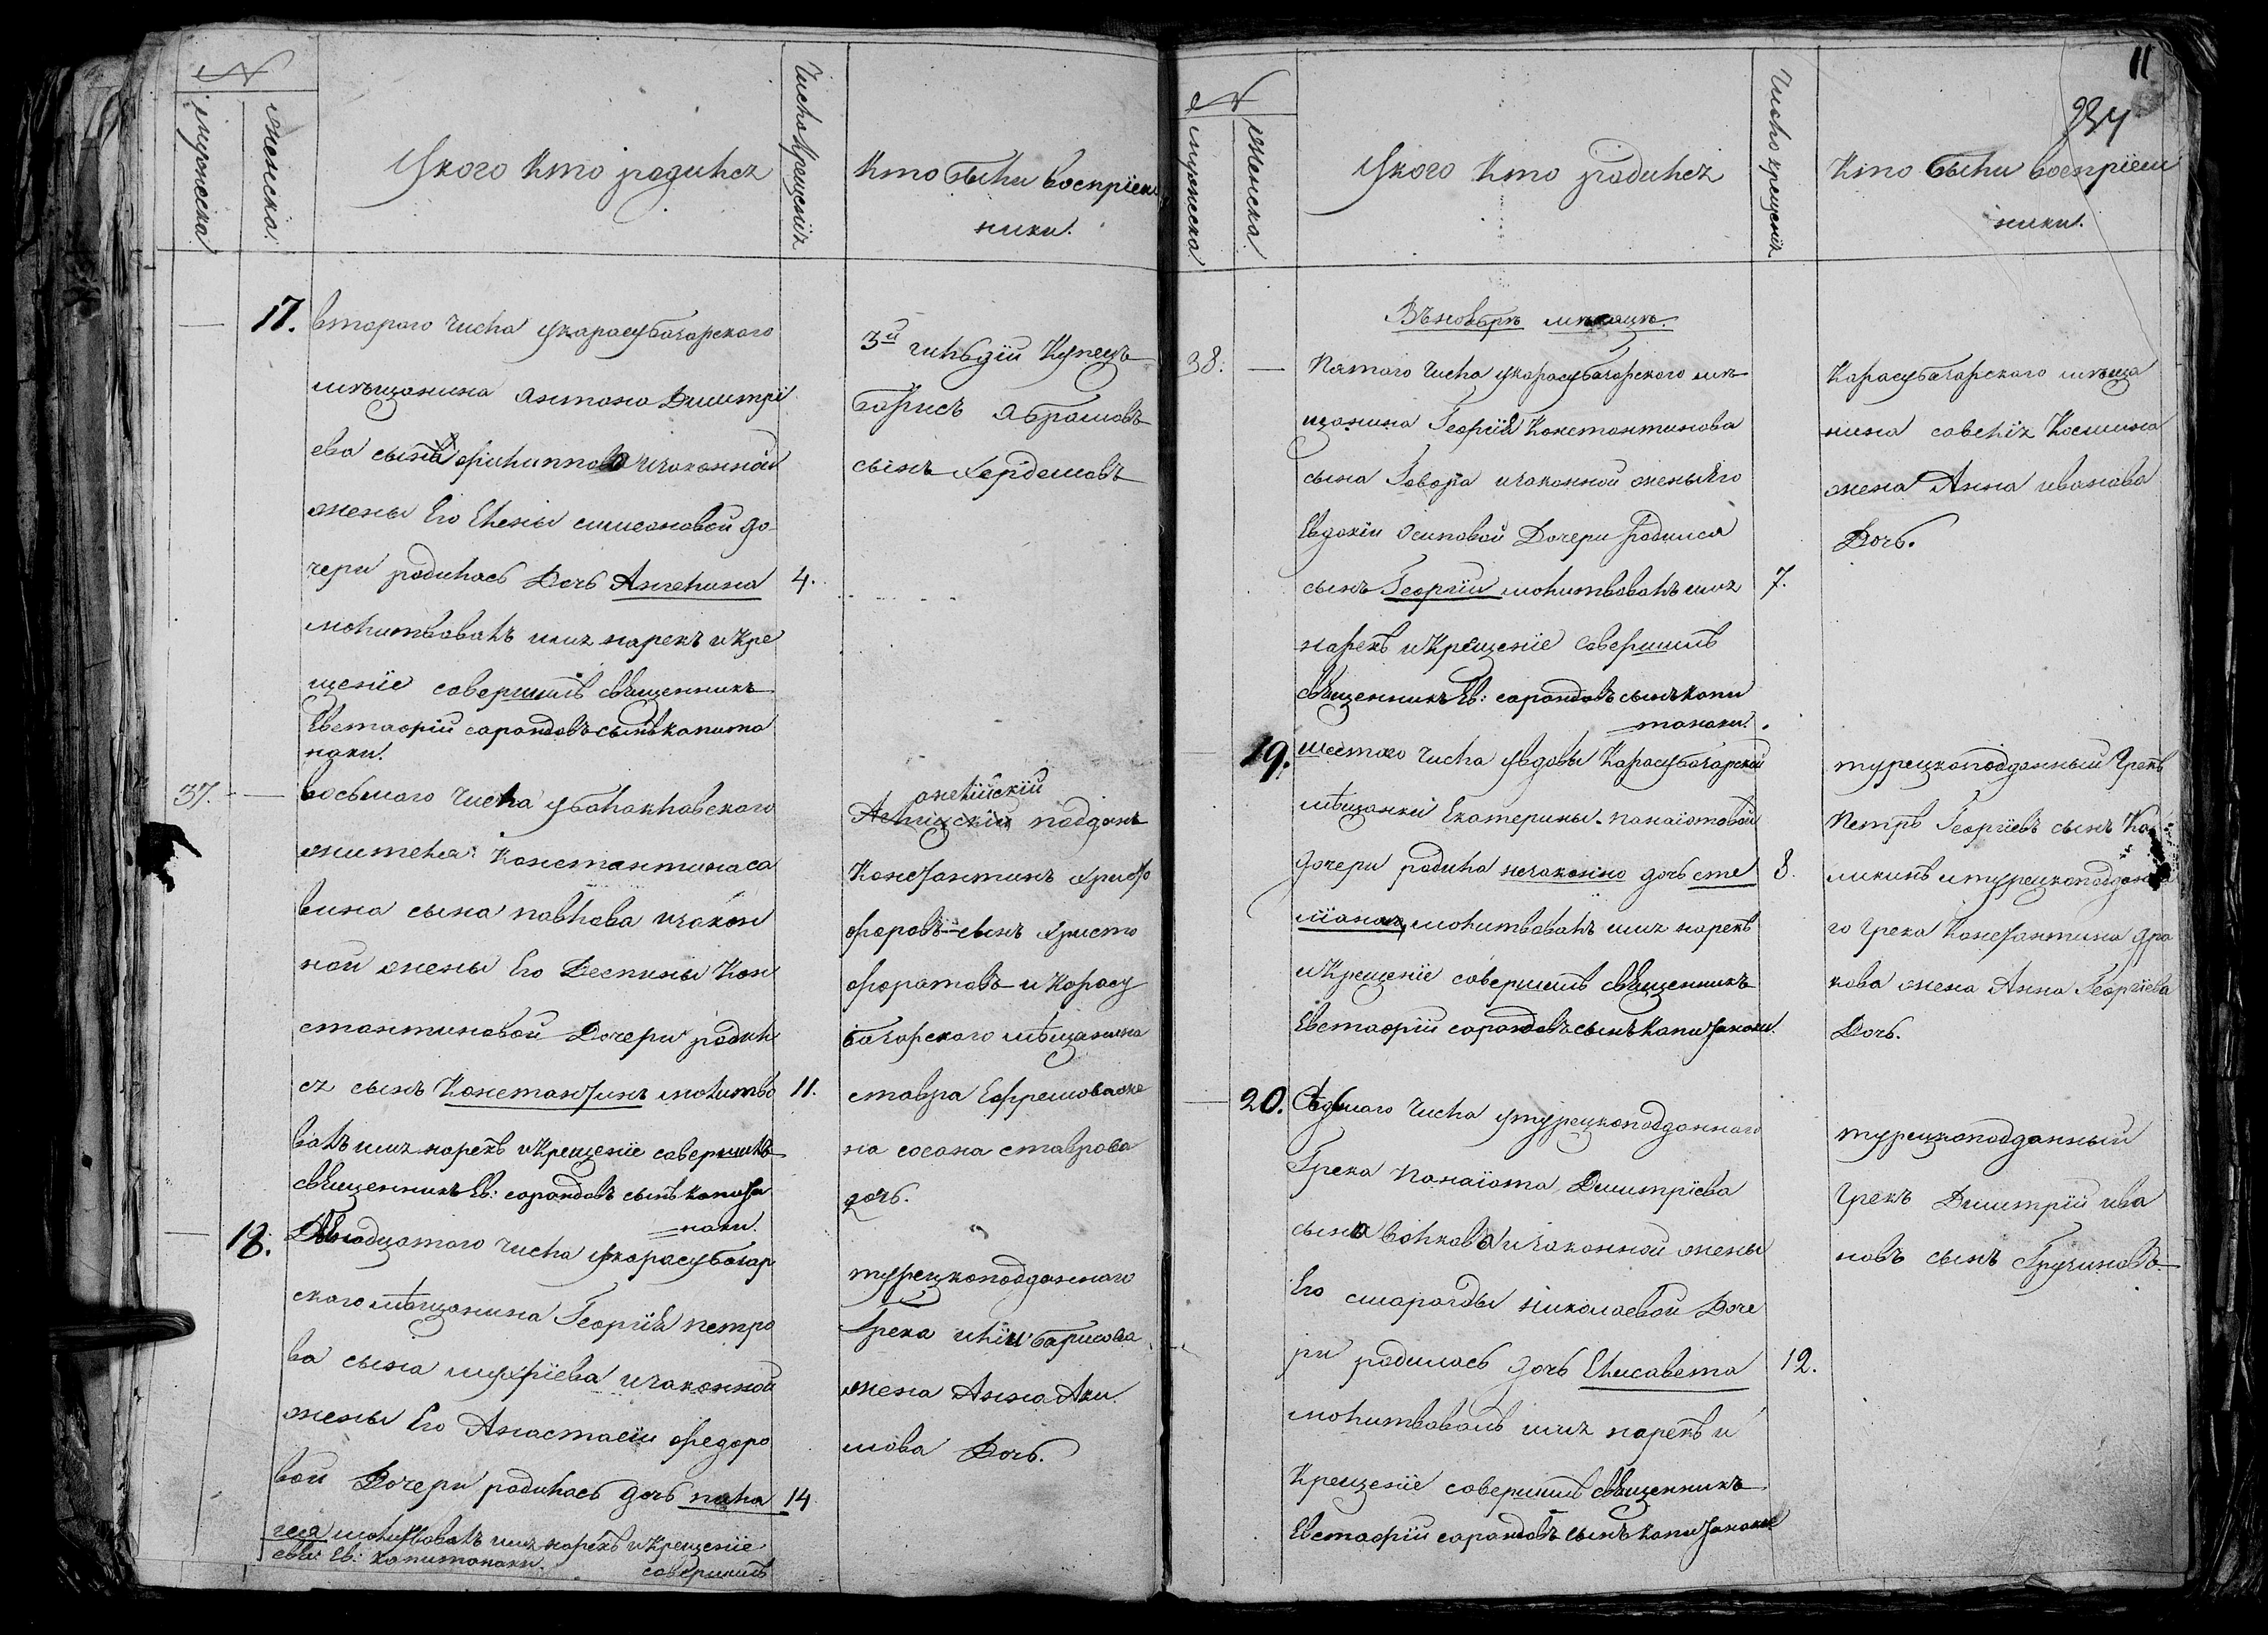 N
мужеска
женска
Укого Кто родился
Число Крещенія
Кто были воспріем
ники.
17.
втораго числа укарасубазарского
мѣщанина Антона Дмитрі
ева сына Филиппова изаконной
жены Его Елены симеоновой до
чери родилась Дочь Ангелина
4.
молитвовалъ имя нарекъ и Кре
щеніе совершилъ священникъ
Евстафій сарандовъ сынъ капита
наки.
3й гильдіи Купецъ
борисъ Абрамовъ
сынъ
37.
восьмаго числа убалаклавского
жителя Константина са
вина сына павлова изакон
ной жены Его Деспины Кон
стантиновой Дочери родил
ся сынъ Константинъ молитво
11.
валъ имя нарекъ и Крещеніе совершилъ
священникъ Ев: сарандовъ сынъ капита
наки.
подданъ
Константинъ Христо
форовъ сынъ Христо
форатовъ и Карасу
базарского мѣщанина
ставра Ефремова же
на сосана ставрова
дочь.
18.
Двенадцатого числа укарасубазар
ского мѣщанина Георгія петро
ва сына изаконной
жены Его Анастасіи федоро
вой Дочери родилась дочь пела
14
гея молитвовалъ имя нарекъ и Крещеніе
свящ: Ев: капитанаки. совершилъ
турецкоподданного
Грека иліи борисова
жена Анна Аки
мова Дочь.
11
234
N
мужеска
женска
Укого Кто родился
Число крещенія
Кто были воспріем
ники.
Въ ноябрѣ мѣсяцѣ.
38.
Пятого числа укарасубазарского мѣ
щанина Георгія Константинова
сына изаконной жены Его
Евдокіи Осиповой Дочери родился
сынъ Георгіи молитвовалъ имя
7.
нарекъ и Крещеніе совершилъ
священникъ Ев: сарандовъ сынъ капи
танаки.
Карасубазарского мѣща
нина савелія Космина
жена Анна иванова
Дочь.
19.
шестого числа увдовы Карасубазарской
мѣщанки Екатерины панаіотовой
дочери родила незаконно дочь сте
8.
молитвовалъ имя нарекъ
и Крещеніе совершилъ священникъ
Евстафіи сарандовъ сынъ капитанаки.
турецкоподданный Грекъ
Петръ Георгіевъ сынъ Ка
ликинъ и турецкоподданна
го Грека Константина дра
кова жена Анна Георгіева
Дочь.
20.
Седьмаго числа утурецкоподданного
Грека Панаіота Дмитріева
сына Волкова изаконной жены
Его смарагды николаевой Доче
ри родилась дочь Елисавета
12.
молитвовалъ имя нарекъ и
Крещеніе совершилъ священникъ
Евстафіи сарандовъ сынъ капитанаки
турецкоподданный
Грекъ Дмитрій ива
новъ сынъ Грузиновъ.